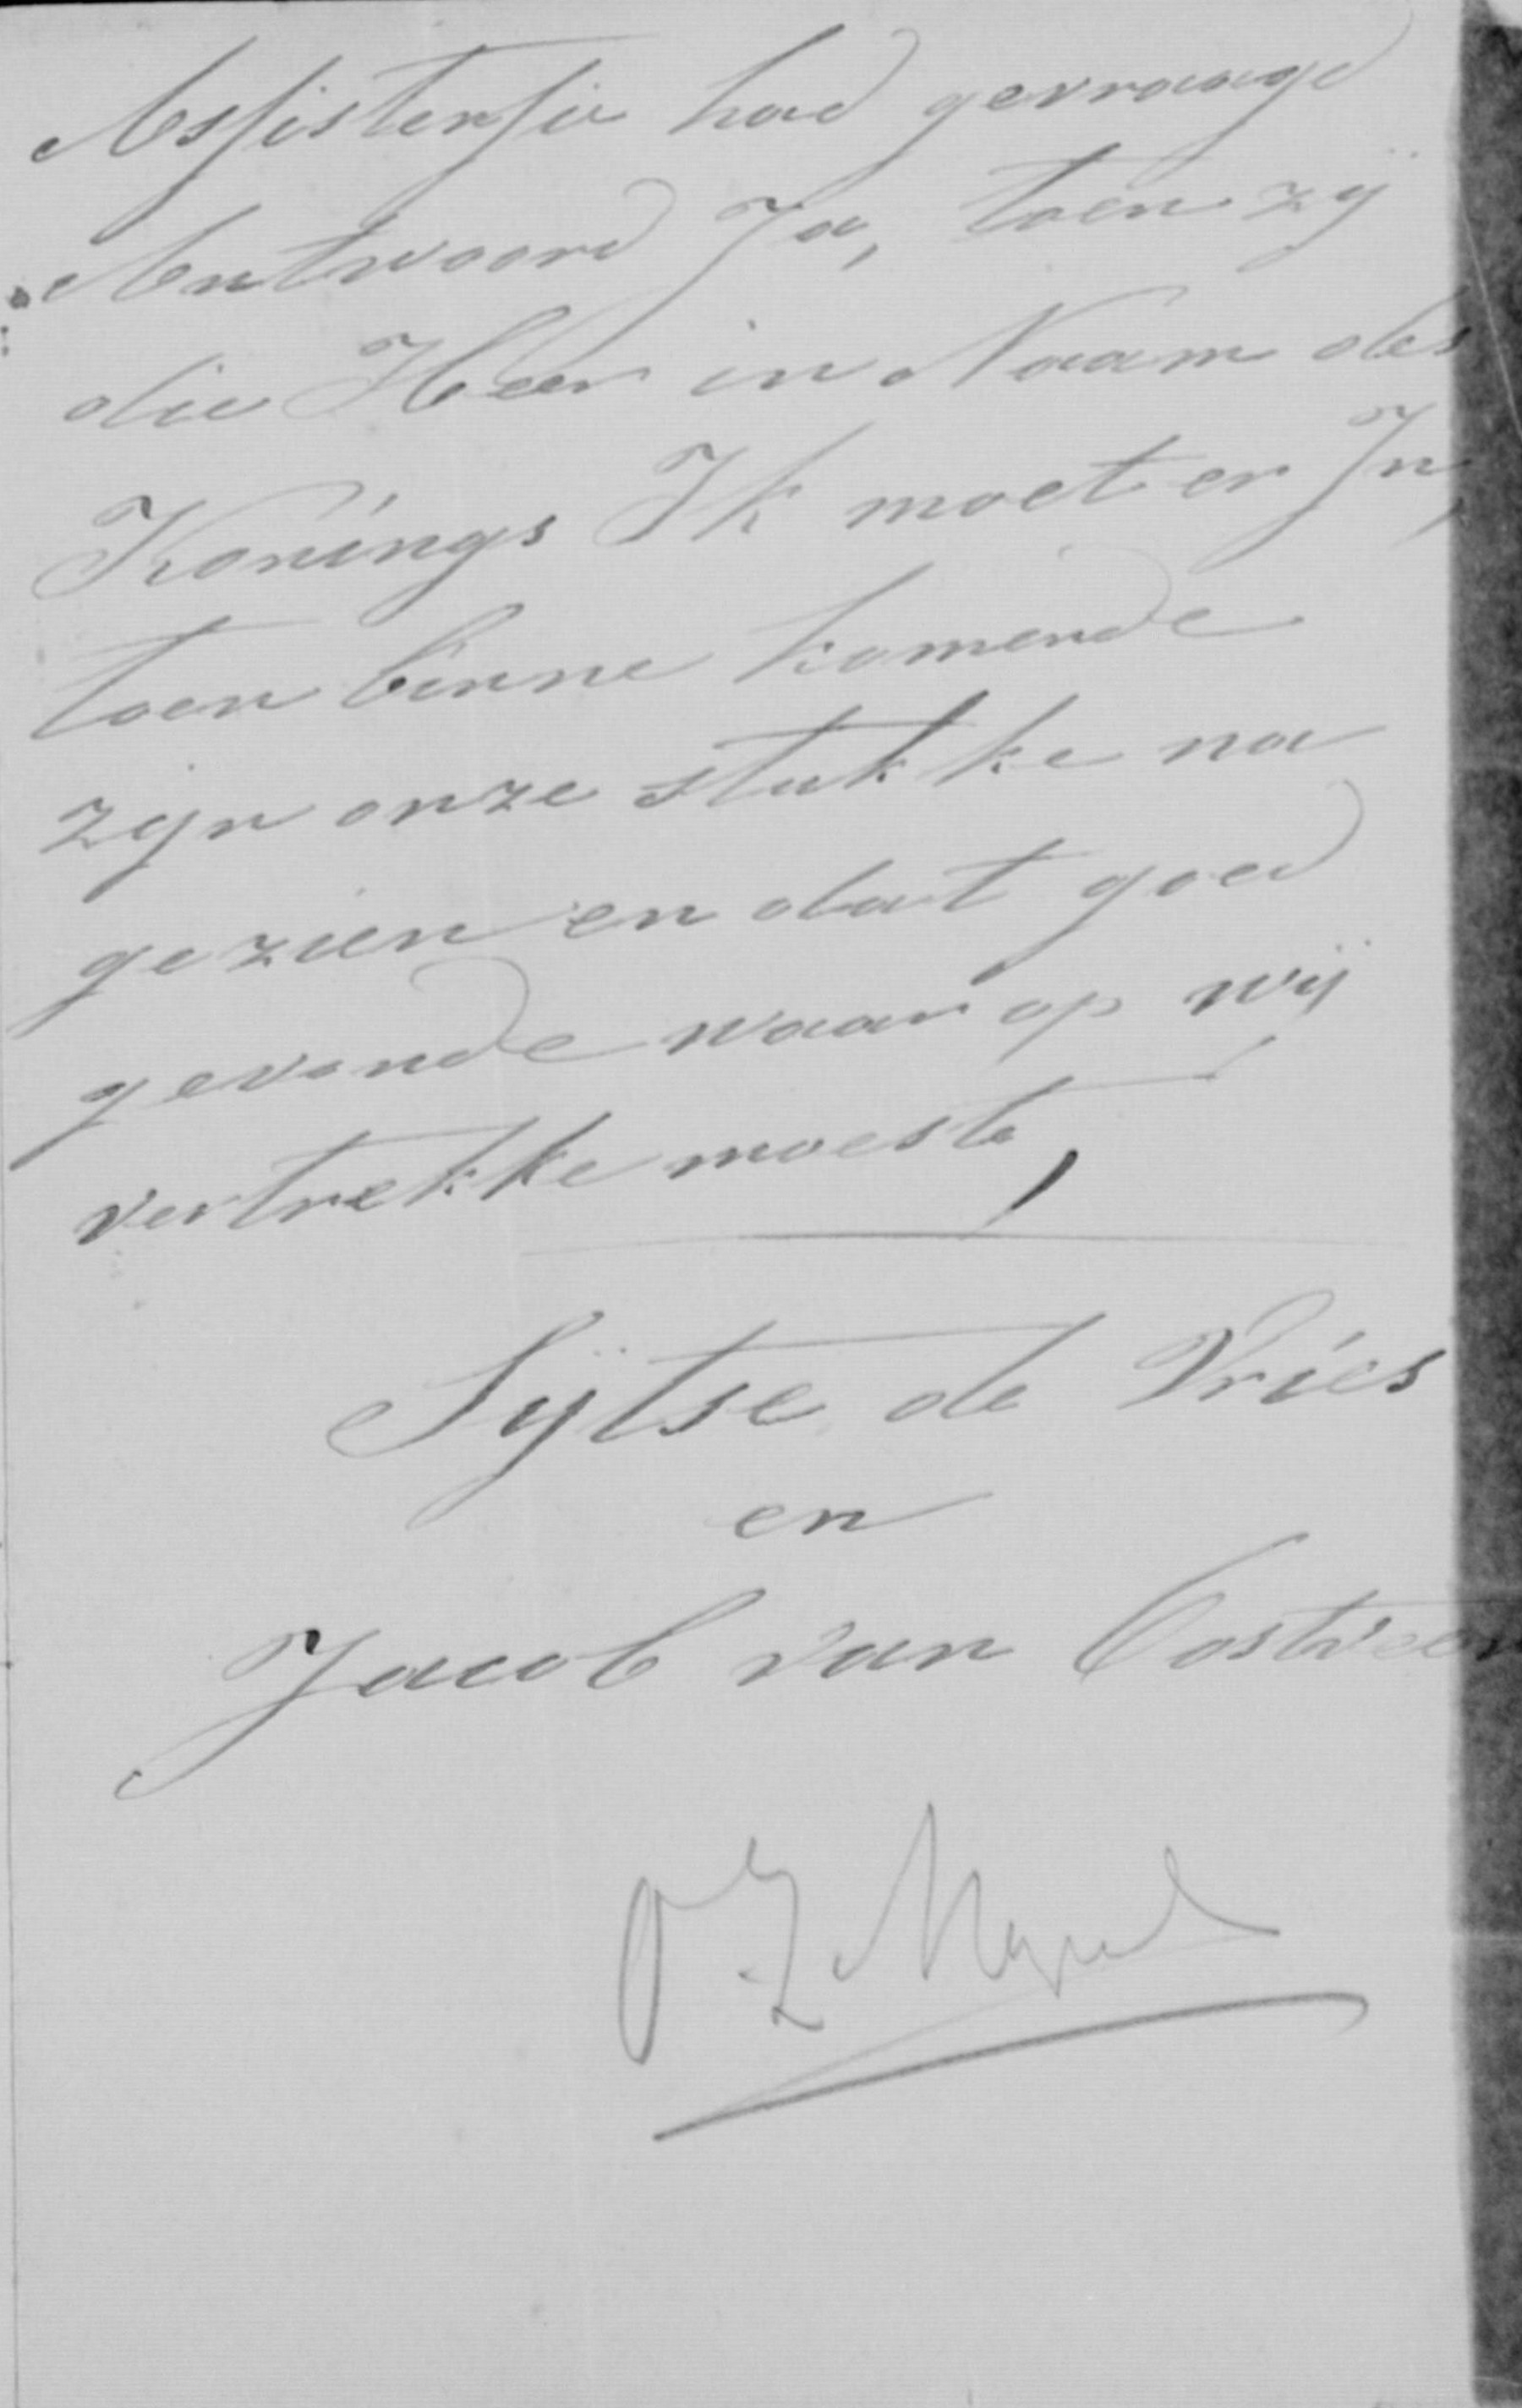 Assistensie had gevraagd
Antwoord Ja, toen zij
die Heer in Naam des
Konings Ik moet er In,
toen binne komende
zijn onze stukke na
gezien en dat goed
gevonde waar op wij
vertrekke moeste,
Sijtse de Vries
en
Jacob van Oostveen